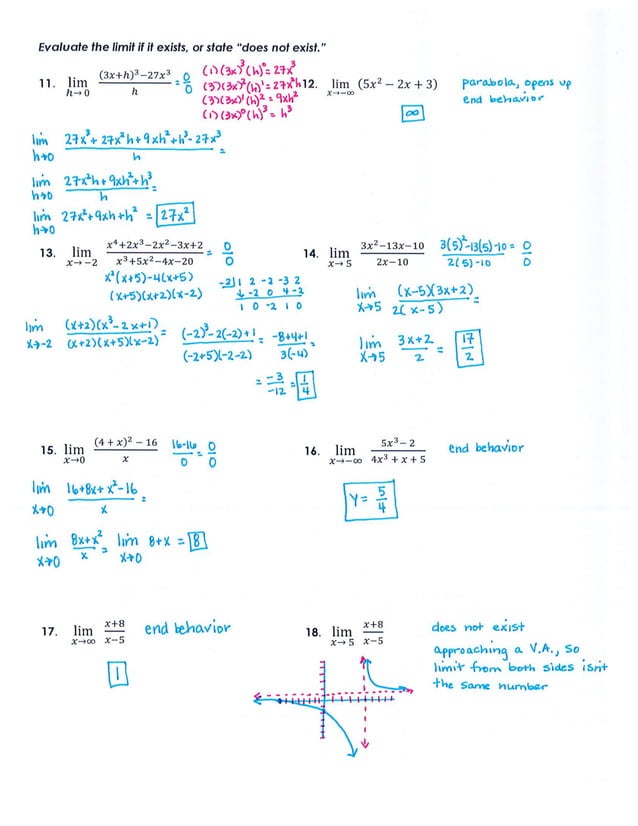 Evaluate the limit if it exists, or state "does not exist."
11. lim h→0 ((3x+h)³−27x³)/h = 0/0
(1)(3x)³(h)⁰ = 27x³
(3)(3x)²(h)¹ = 27x²h
(3)(3x)¹(h)² = 9xh²
(1)(3x)⁰(h)³ = h³
lim h→0 (27x³ + 27x²h + 9xh² + h³ - 27x³)/h =
lim h→0 (27x²h + 9xh² + h³)/h =
lim h→0 27x² + 9xh + h² = 27x²
12. lim x→−∞ (5x² − 2x + 3)
parabola, opens up
end behavior
∞
13. lim x→−2 (x⁴+2x³−2x²−3x+2)/(x³+5x²−4x−20) = 0/0
x²(x+5)-4(x+5)
(x+5)(x+2)(x-2)
-2| 1 2 -2 -3 2
↓ -2 0 4 -2
1 0 -2 1 0
lim x→-2 ((x+2)(x³-2x+1))/((x+2)(x+5)(x-2)) = ((-2)³-2(-2)+1)/((-2+5)(-2-2)) = (-8+4+1)/(3(-4)) =
= -3/-12 = 1/4
14. lim x→5 (3x²−13x−10)/(2x−10)
(3(5)²-13(5)-10)/(2(5)-10) = 0/0
lim x→5 ((x-5)(3x+2))/(2(x-5)) =
lim x→5 (3x+2)/2 = 17/2
15. lim x→0 ((4+x)²−16)/x
(16-16)/0 = 0/0
lim x→0 (16+8x+x²-16)/x =
lim x→0 (8x+x²)/x = lim x→0 8+x = 8
16. lim x→−∞ (5x³−2)/(4x³+x+5)
end behavior
y = 5/4
17. lim x→∞ (x+8)/(x−5)
end behavior
1
18. lim x→5 (x+8)/(x−5)
does not exist
approaching a V.A., so
limit from both sides isn't
the same number